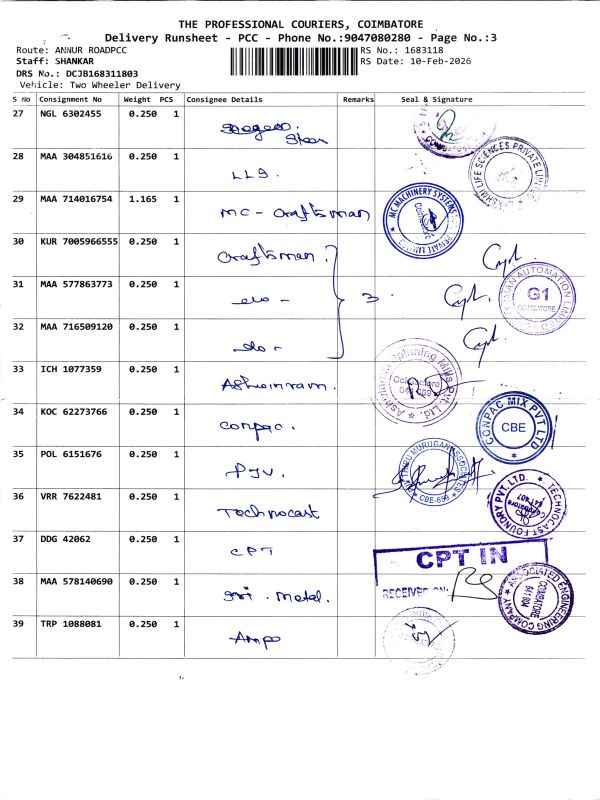 THE PROFESSIONAL COURIERS, COIMBATORE
Delivery Runsheet - PCC - Phone No.:9047080280 - Page No.:3
Route: ANNUR ROADPCC
RS No.: 1683118
Staff: SHANKAR
RS Date: 10-Feb-2026
DRS No.: DCJB168311803
Vehicle: Two Wheeler Delivery
S No Consignment No Weight PCS Consignee Details Remarks Seal & Signature
27 NGL 6302455 0.250 1
28 MAA 304851616 0.250 1 LLS.
SCIENCES PRIVATE
29 MAA 714016754 1.165 1 MC - Craftsman
MC MACHINERY SYSTEMS PRIVATE LIMITED
30 KUR 7005966555 0.250 1 Craftsman.
31 MAA 577863773 0.250 1 3
AUTOMATION LIMITED G1 COIMBATORE
32 MAA 716509120 0.250 1
33 ICH 1077359 0.250 1 Ashwinram.
Spinning Mills Pvt. Ltd.
34 KOC 62273766 0.250 1 Conpac.
CONPAC MIX PVT LTD CBE
35 POL 6151676 0.250 1
THIRU MURUGAN ASSOCIATES CBE-659
36 VRR 7622481 0.250 1 Technocast
TECHNOCAST FOUNDRY PVT. LTD. Coimbatore 641 407
37 DDG 42062 0.250 1 CPT
CPT IN
RECEIVED ON:
38 MAA 578140690 0.250 1 Sri. Metal.
ASSOCIATED ENGINEERING COMPANY COIMBATORE
39 TRP 1088081 0.250 1 Ampo